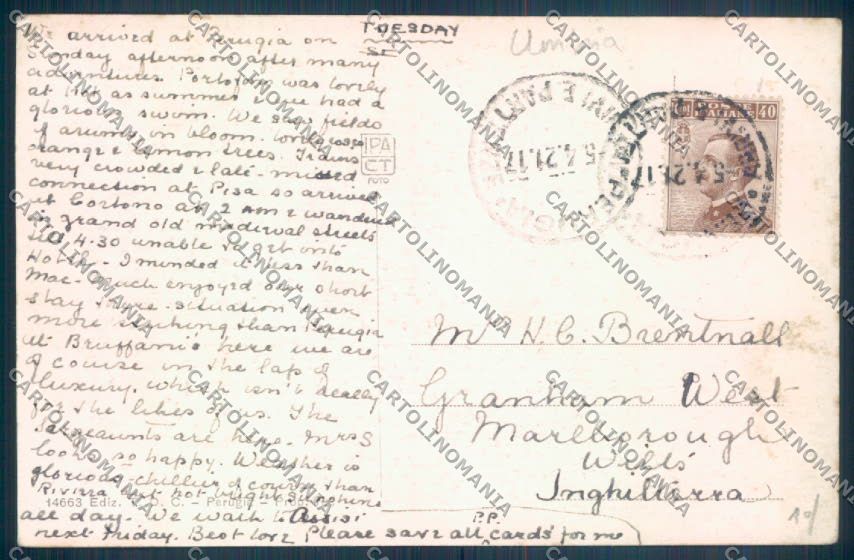 TUESDAY
We arrived at Perugia on
Sunday afternoon after many
adventures. Portofino was lovely
as summer & we had a
glorious swim. We saw fields
of arums in bloom. roses
orange & lemon trees. Trains
very crowded & late - missed
connection at Pisa so arrived
at Cortona at 2 am & wandered
in grand old medieval streets
till 4.30 unable to get into
Hotels - I minded it less than
Mac - much enjoyed our short
stay there - situation even
more striking than Perugia
at Bruffani's here we are
of course in the lap of
luxury. which isn't really
for the likes of us. The
are here. Mrs S
looks so happy. Weather is
glorious - chillier of course than
Riviera but hot bright sunshine
all day. We walk to Assisi
next Friday. Best love Please save all cards for me
P.P.
14663 Ediz. - Perugia
IPA
CT
FOTO
Umbria
POSTE
ITALIANE
40
5.4.21.17
5.4.21.17
Mrs H. C. Brentnall
Granham West
Marlborough
Wilts
Inghilterra
CARTOLINOMANIA